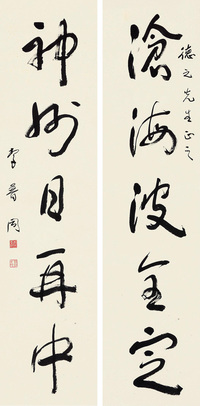 滄海波全定
德元先生正之
神州日再中
李普同